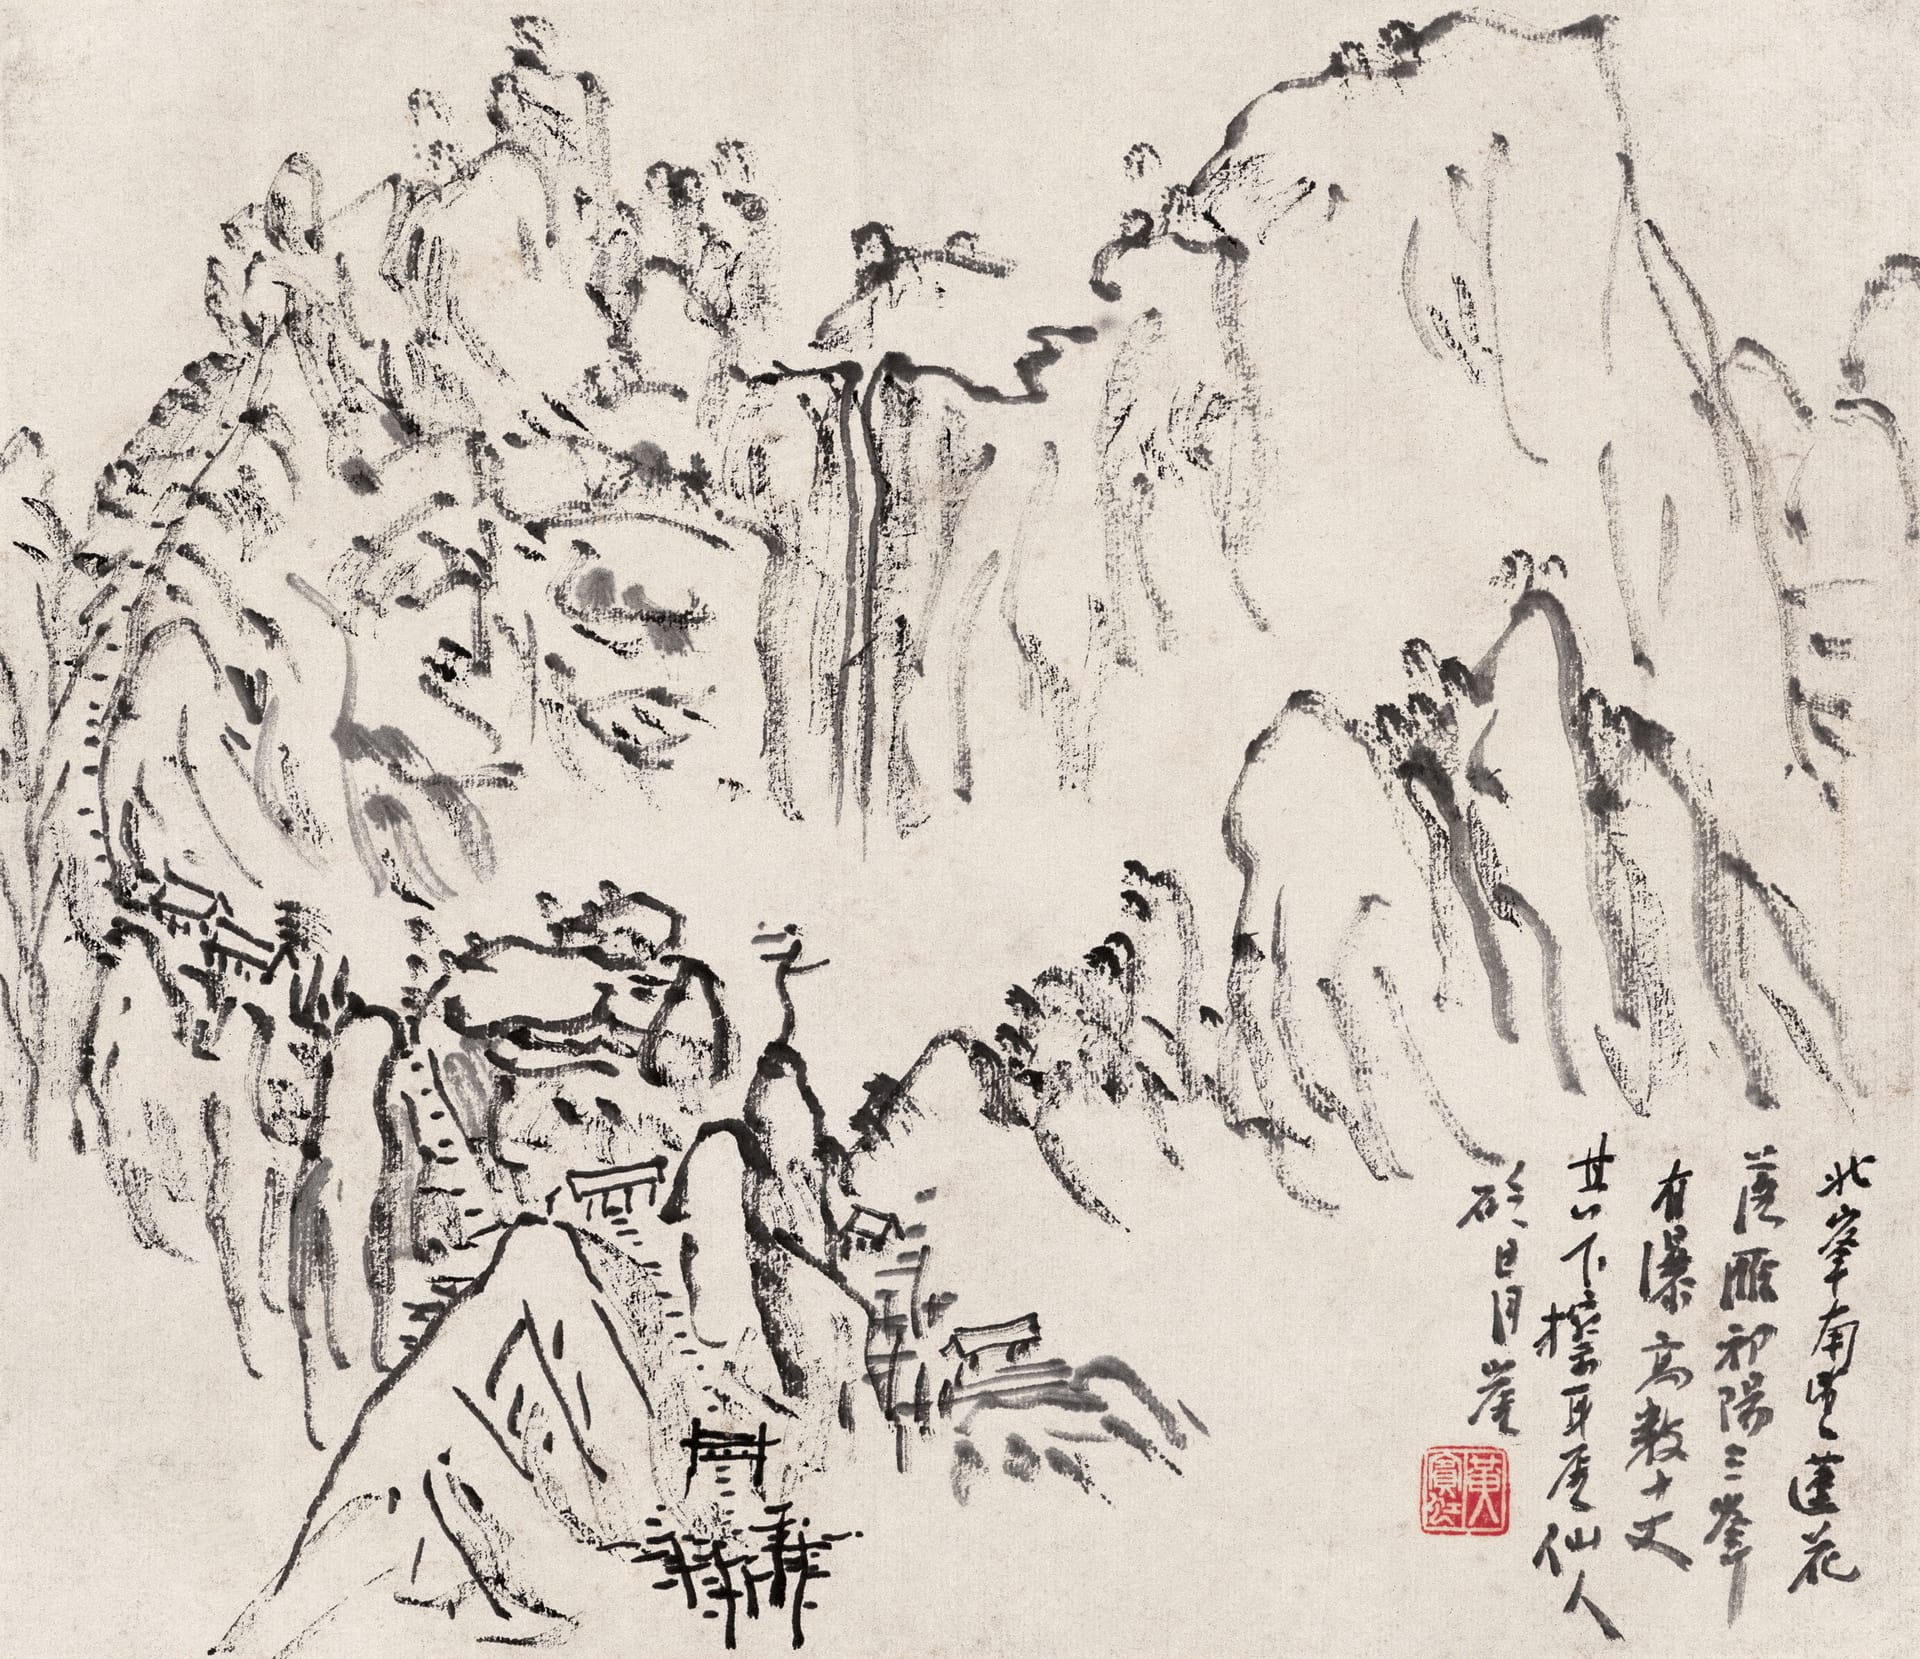 北峯南望蓮花
落雁初陽三峯
有瀑高數十丈
其下擦耳厓仙人
砭日月崖
黃賓虹